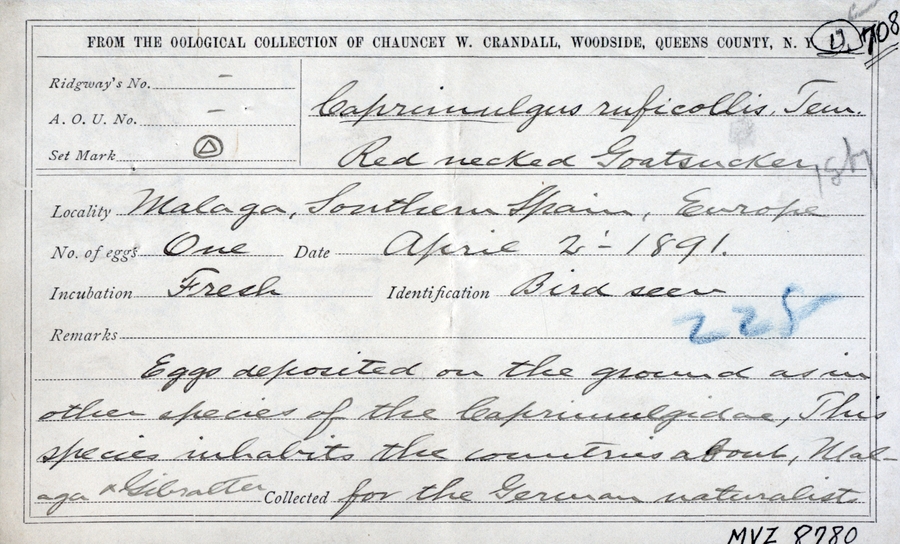 FROM THE OOLOGICAL COLLECTION OF CHAUNCEY W. CRANDALL, WOODSIDE, QUEENS COUNTY, N. Y. 708
Ridgway's No. –
A. O. U. No. –
Set Mark
Caprimulgus ruficollis. Tem.
Red necked Goatsucker
Locality Malaga, Southern Spain, Europe
No. of eggs One Date April 2 - 1891.
Incubation Fresh Identification Bird seen
225
Remarks
Eggs deposited on the ground as in
other species of the Caprimulgidae, This
species inhabits the countries about, Mal-
aga & Gibralter Collected for the German naturalist.
MVZ 8780